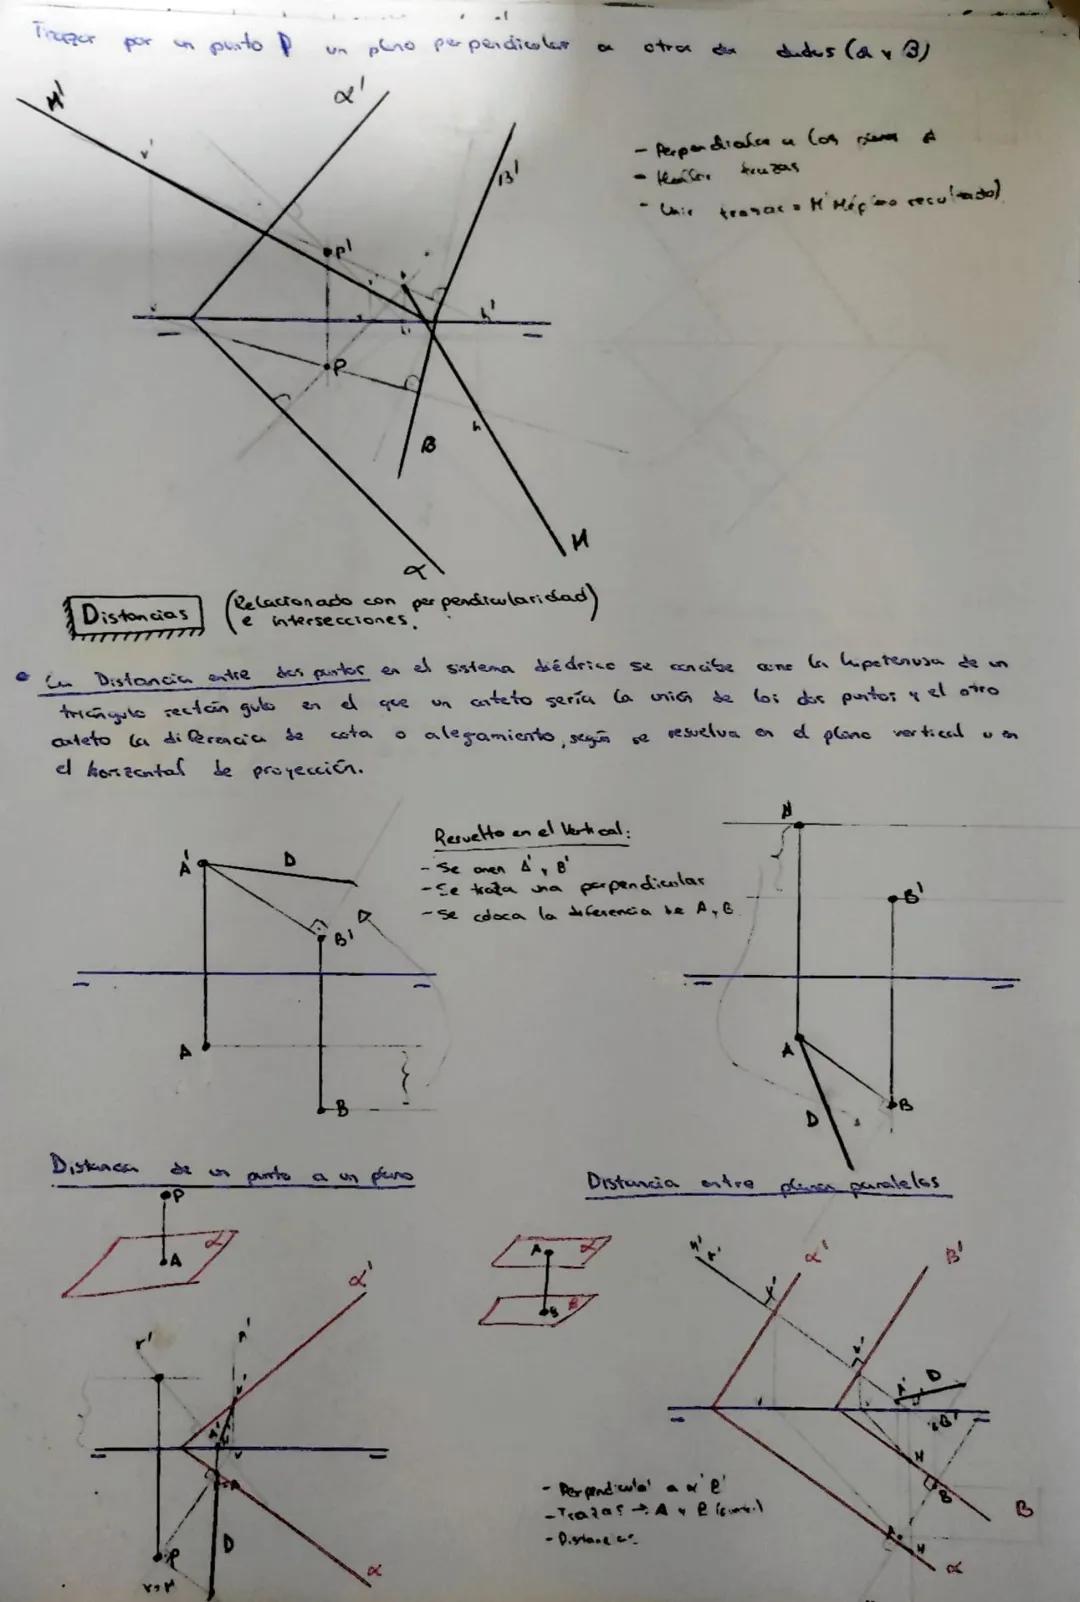 Trazar por un punto P un plano perpendicular a otros dos dados (α y B)
M'
α'
v'
B'
- Perpendicular a los
- trazas
- Unir trazas = M' M
P'
h'
P
h
B
M
α
Distancias (Relacionado con perpendicularidad
e intersecciones.)
La Distancia entre dos puntos en el sistema diédrico se concibe como la hipotenusa de un
triángulo rectángulo en el que un cateto sería la unión de los dos puntos y el otro
cateto la diferencia de cota o alejamiento, según se resuelva en el plano vertical u en
el horizontal de proyección.
A' D
B' D
A
B
Resuelto en el Vertical:
- Se unen A' y B'
- Se traza una perpendicular
- Se coloca la diferencia de A y B
A'
B'
A
B
D
Distancia de un punto a un plano
P
α
A
α'
r'
v'
A'
v
A
P
D
α
Distancia entre planos paralelos
A α
B B
α'
B'
v'
v'
A'
D
B'
H
B
B
A
H
α
- Perpendicular a α' B'
- Trazas → A y B
- Distancia